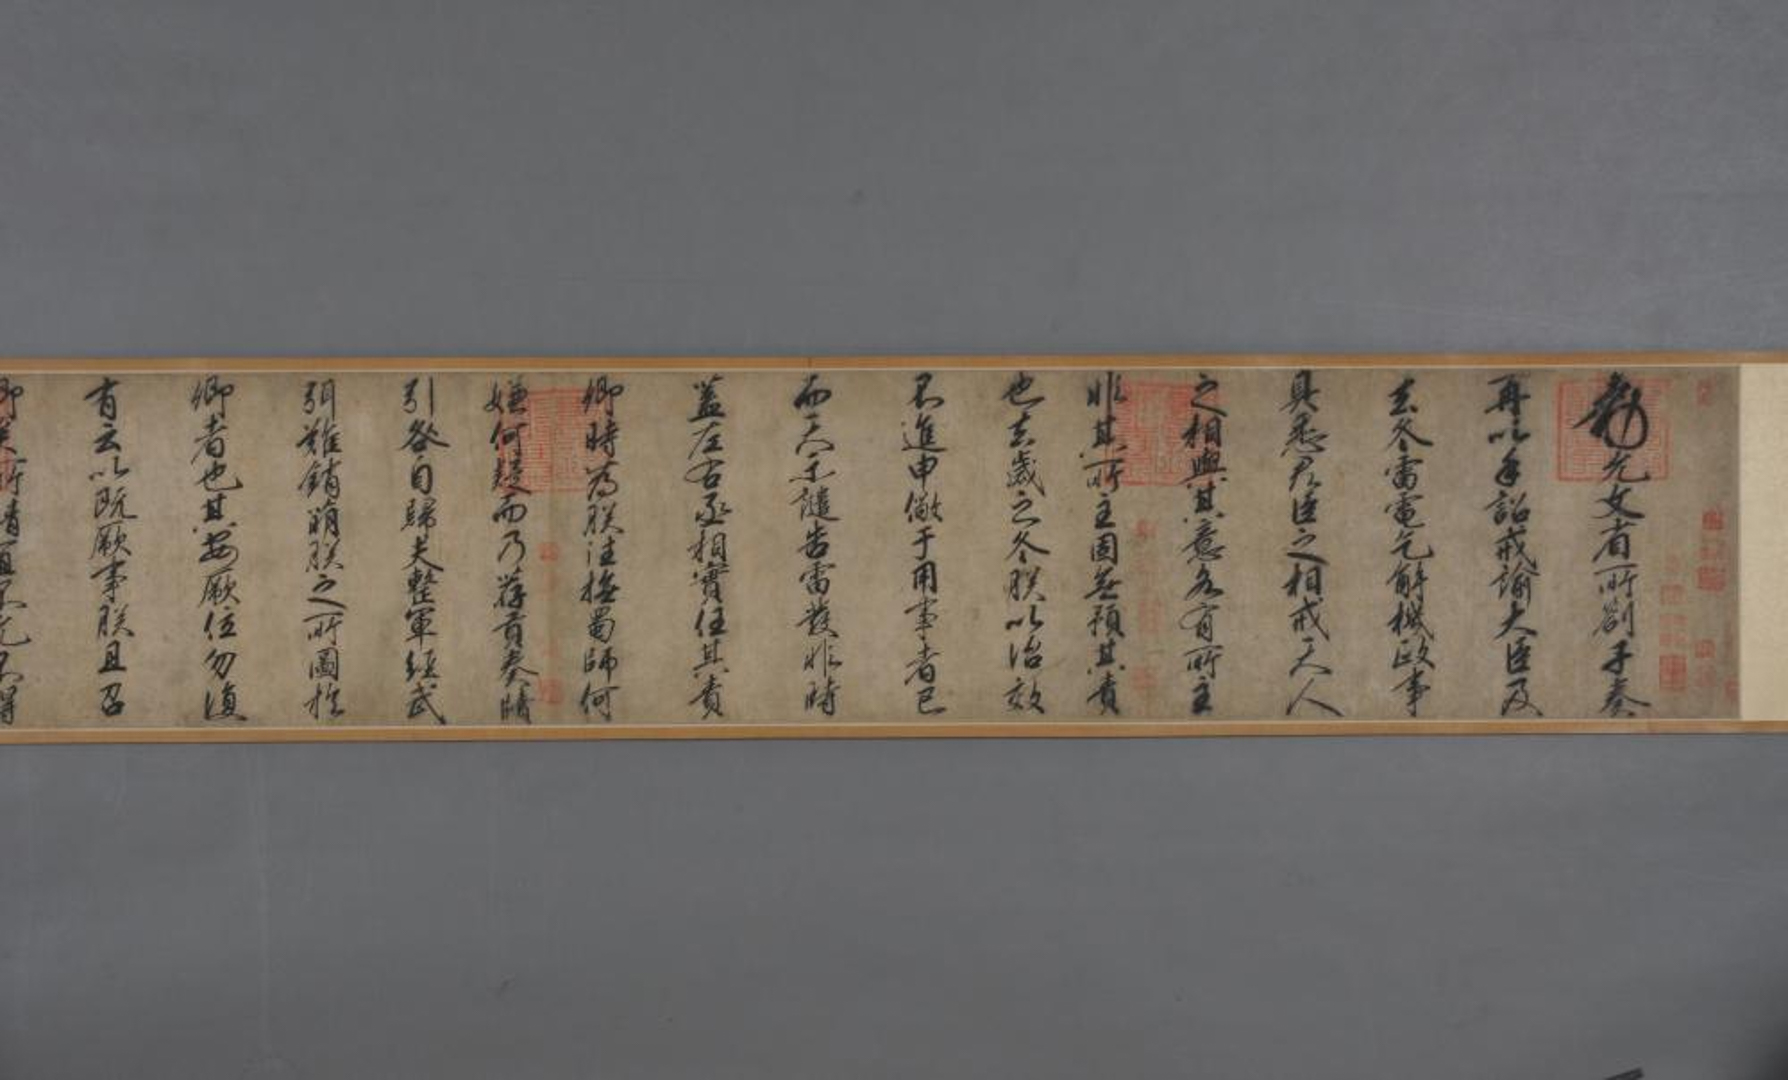 勅允文省所劄子奏
再以手詔戒諭大臣及
去冬雷電乞解機政事
具悉君臣之相戒天人
之相與其意各有所主
非其所主固無預其責
也去歲之冬朕以治效
不進申儆于用事者已
而天示譴告雷發非時
蓋左右丞相實任其責
卿時為朕往撫蜀師何
嫌何疑而乃荐有奏牘
引咎自歸夫整軍經武
弭難銷萌朕之所圖於
卿者也其安厥位勿復
有云以既厥事朕且召
卿矣所請宜不允不得